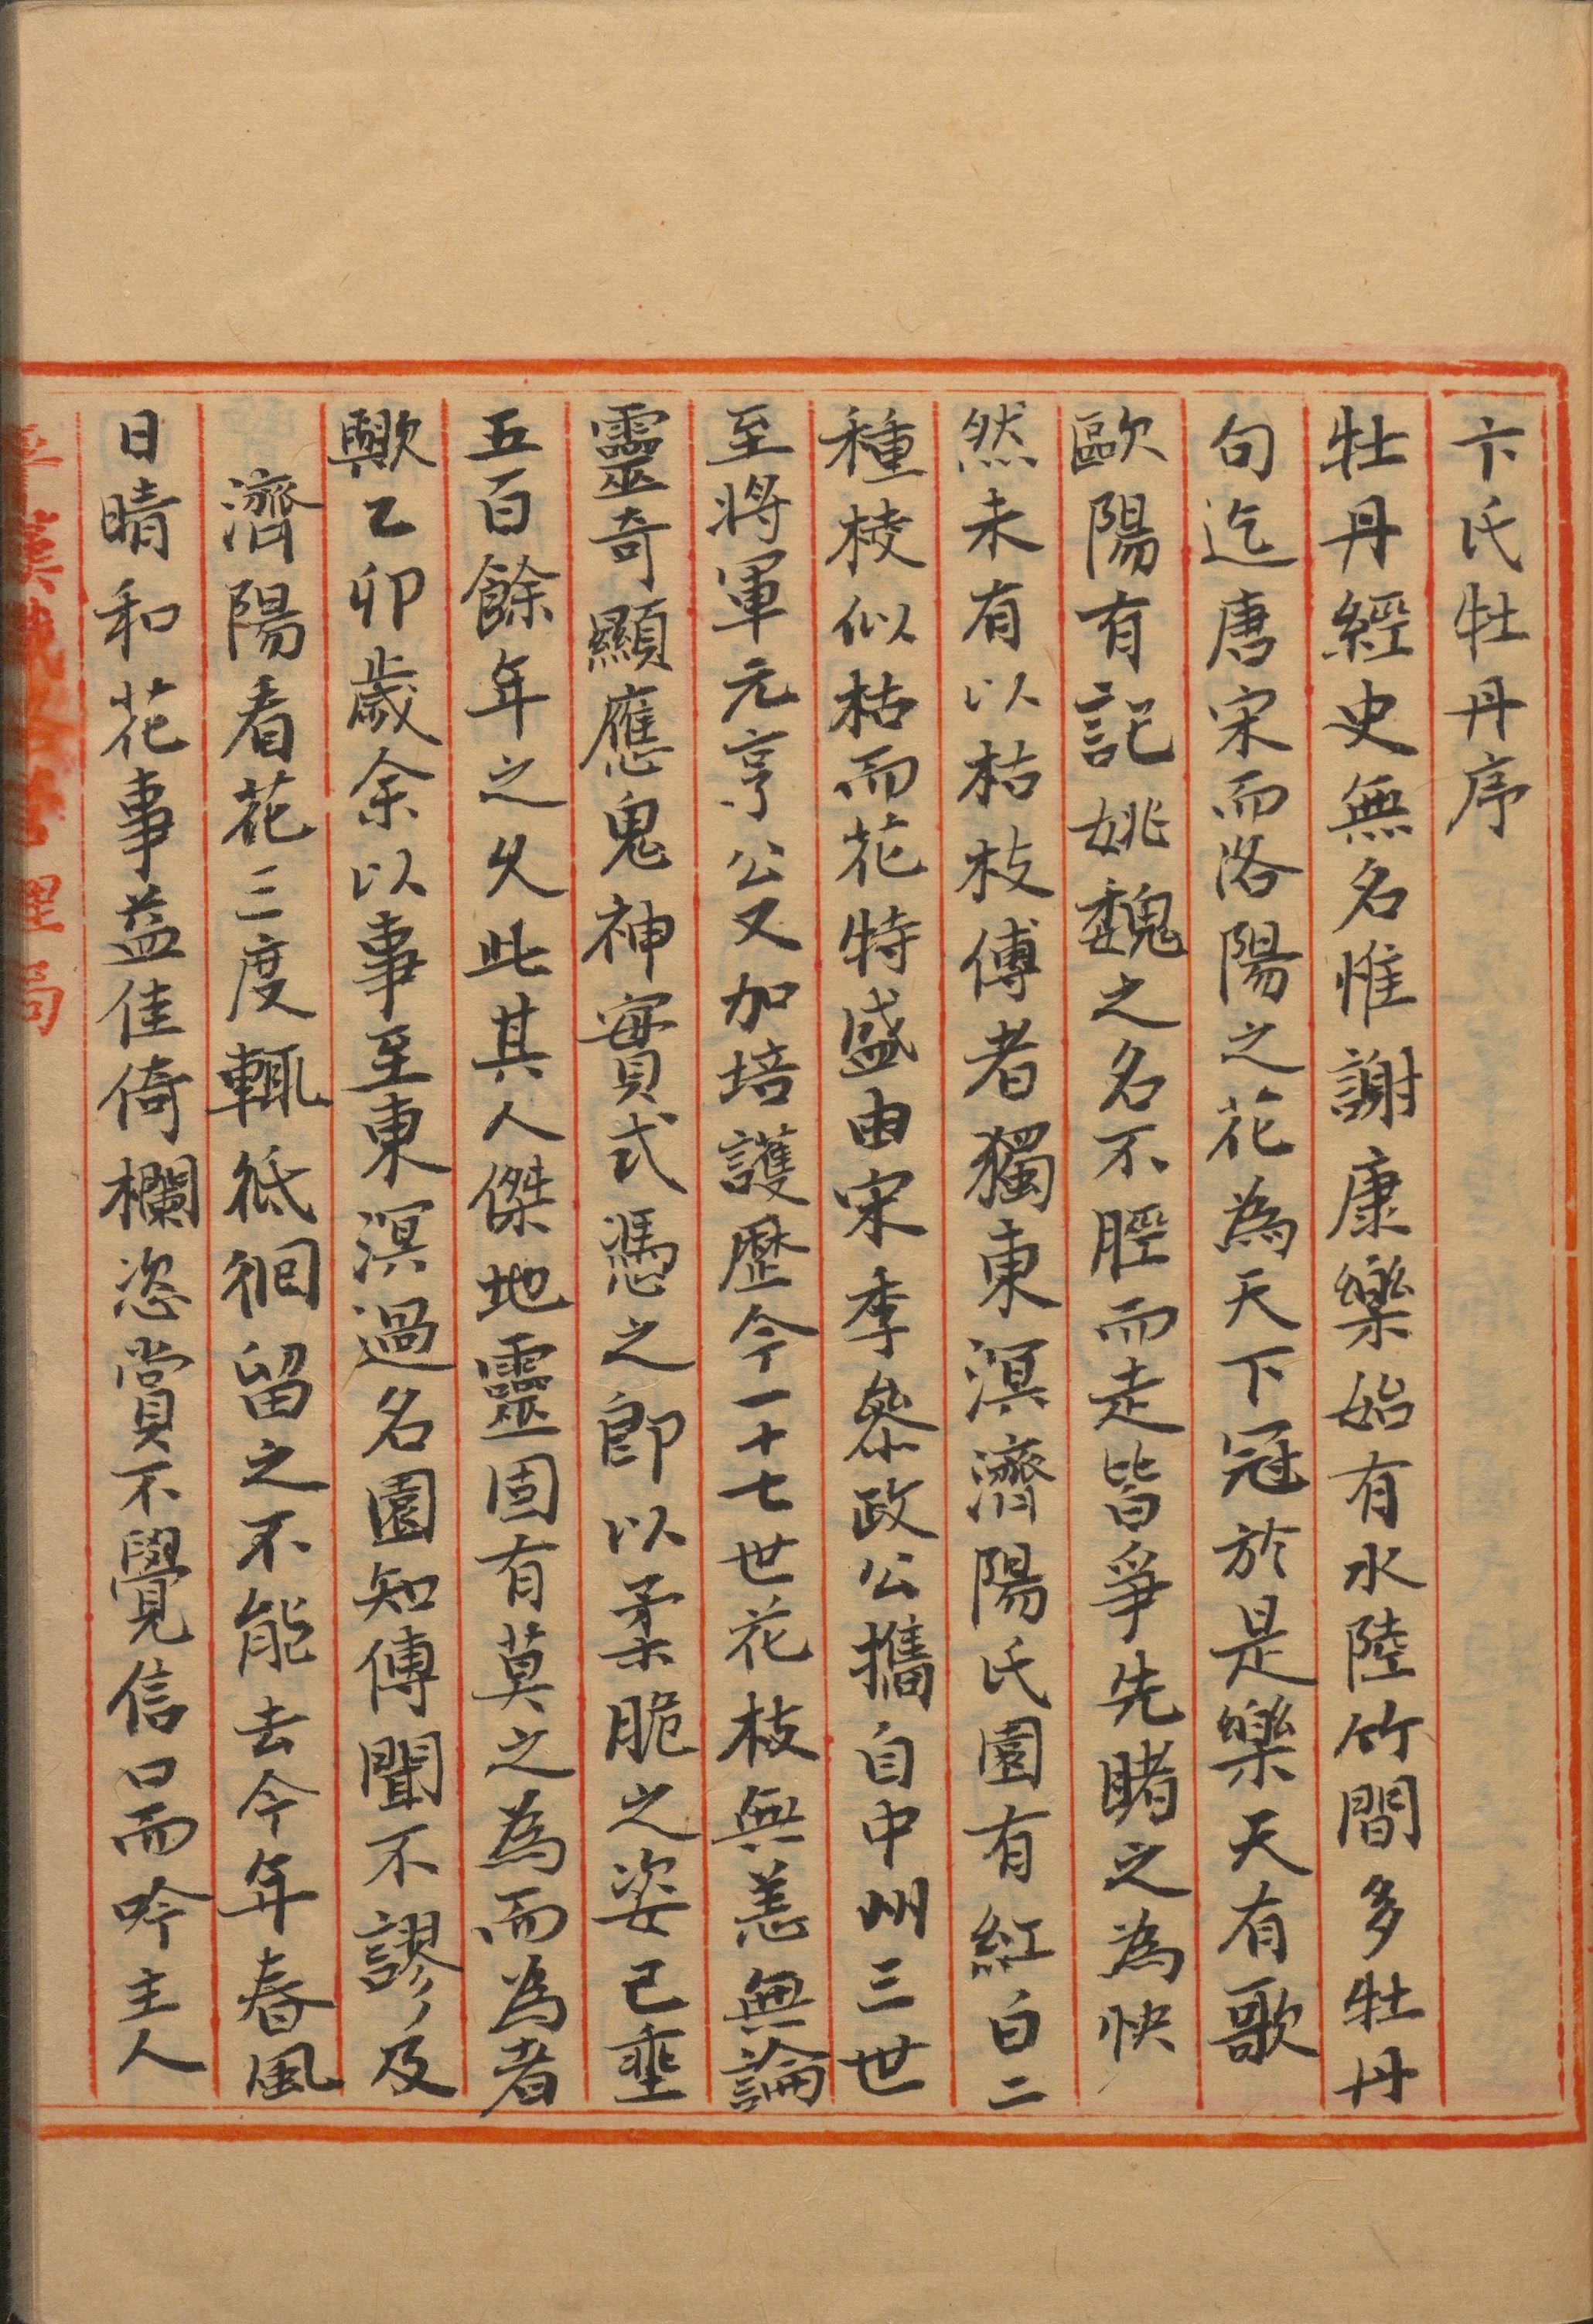 卞氏牡丹序
牡丹經史無名惟謝康樂始有水陸竹間多牡丹
句迄唐宋而洛陽之花為天下冠於是樂天有歌
歐陽有記姚魏之名不脛而走皆爭先睹之為快
然未有以枯枝傅者獨東溟濟陽氏園有紅白二
種枝似枯而花特盛由宋季叅政公攜自中州三世
至將軍元亨公又加培護歷今一十七世花枝無恙無論
靈奇顯應鬼神實式憑之即以柔脆之姿已垂
五百餘年之久此其人傑地靈固有莫之為而為者
歟乙卯歲余以事至東溟過名園知傅聞不謬及
濟陽看花三度輒徘徊留之不能去今年春風
日晴和花事益佳倚欄恣賞不覺信口而吟主人